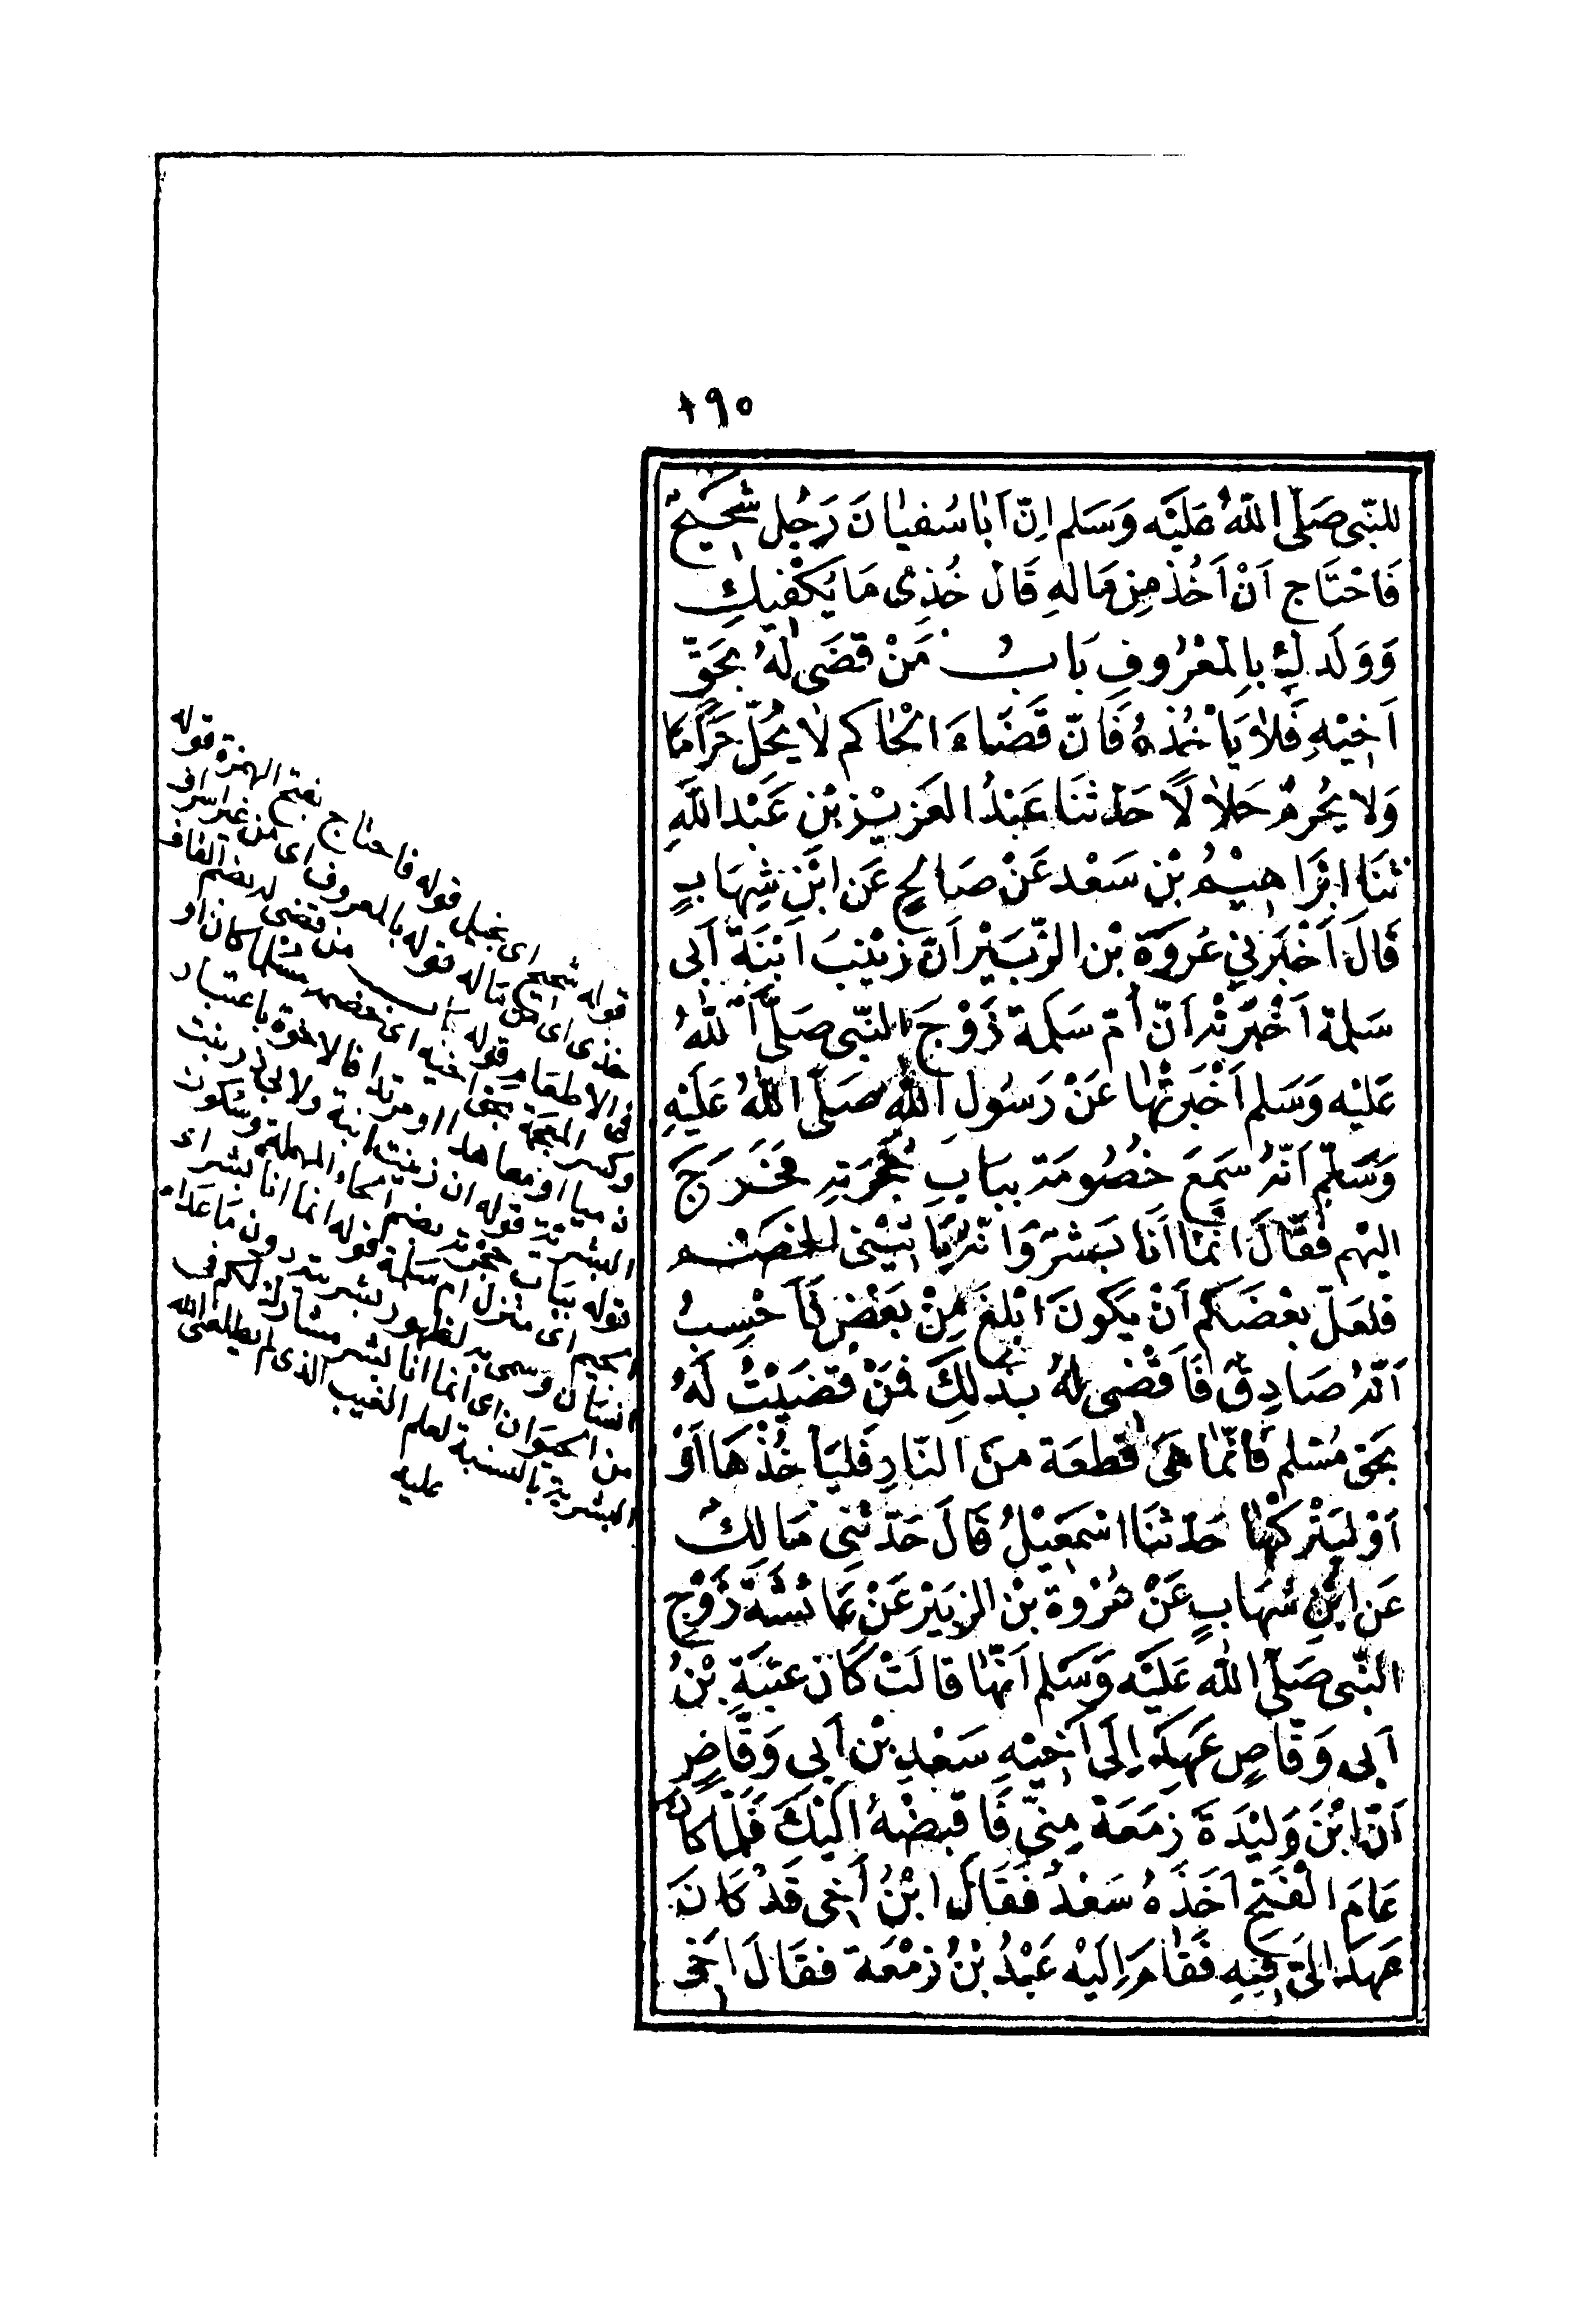 ١٩٥
للنّبى صَلّى اللّهُ عَلَيْه وَسَلم اِنّ اَبَا سُفيَانَ رَجُل شَحِيحٌ
فَاحْتَاج اَنْ اَخُذ مِن مَالهِ قَال خُذِى مَا يَكْفِيكِ
وَوَلَدكِ بِالمَعْرُوفِ بَابُ مَنْ قضَى لَهُ بحَقّ
اَخِيْهِ فَلاَ يَاْخُذْهُ فَانّ قَضَاءَ الْحَاكم لاَ يُحلّ حَرَامًا
وَلاَ يُحرمُ حَلاَلًا حَدثنَا عَبْدُ العَزِيْز بْن عَبْد اللَّهِ
ثنَا ابْرَاهِيْمُ بْن سَعْد عَنْ صَالحٍ عَن ابْنِ شِهَابٍ
قَالَ اَخْبَرَنِي عُروَة بْن الزّبَيْر اَنّ زيْنبَ ابْنَةَ اَبى
سَلمة اَخْبَرَتْه اَنّ اُمّ سَلمة زَوْجَ النّبى صَلَّى اللّهُ
عَلَيْه وَسَلم اَخْبَرَتْهَا عَنْ رَسُول اللّهِ صَلّى اللّهُ عَلَيْهِ
وَسَلّم اَنّهُ سَمِعَ خصُومَة ببَابِ حُجْرَتهِ فَخَرَجَ
اليْهم فَقَالَ انّمَا اَنَا بَشرٌ وَانّهُ يَاتيْنى الخصْم
فلعَلّ بعْضَكم اَنْ يَكونَ ابْلَغَ مِنْ بَعْضٍ فَاَحْسِبُ
اَنّهُ صَادِقٌ فَاَقْضى لهُ بذلِكَ فمَنْ قضَيْتُ لَهُ
بحَق مُسْلم فَانّمَا هىَ قطعَة منَ النّارِ فَليَاخُذْهَا اَوْ
اَوْ ليَتْركهَا حَدثنَا اسْمعِيْلُ قَالَ حَدّثنِى مَالِكٌ
عَن ابْنِ شهَابٍ عَنْ عُرْوة بْن الزبَيْر عَنْ عَائشَةَ زَوْجِ
النّبى صَلّى اللّه عَلَيْه وَسَلم اَنّهَا قالَتْ كَانَ عتبَةُ بْنُ
اَبى وَقّاصٍ عَهِدَ اِلَى اَخِيْهِ سَعْدِ بْن اَبى وَقّاصٍ
اَنّ ابْنَ وَليْدَةَ زمَعَة مِنّى فَاقْبِضْهُ اِلَيْكَ فَلَمّا كانَ
عَامَ الْفَتح اَخَذَهُ سَعْدٌ فَقَالَ ابْنُ اَخِى قَدْ كَانَ
عَهدَ اِلىَّ فِيْهِ فَقَامَ اِليْه عَبْدُ بْنُ زمْعَة فقَالَ اَخى
قوله شحيح اى بخيل قوله فاحتاج بفتح الهمزة قوله
خذى اى من ماله قوله بالمعروف اى من غير اسراف
فى الاطعام قوله باب من قضى له بضم القاف
وكسر المعجمة بحق اخيه اى خصمه مسلما كان او
ذميا او معاهدا او مرتدا فالاخوة باعتبار
البشرية قوله ان زينت ابنة ولابى ذر بنت
قوله بباب حجرته بضم الحاء المهملة وسكون
الجيم اى منزل ام سلمة قوله انما انا بشر اى
انسان وسمى به لظهور بشرته دون ما عداه
من الحيوان اى انما انا بشر مشارك لكم فى
البشرية بالنسبة لعلم الغيب الذى لم يطلعنى الله
عليه